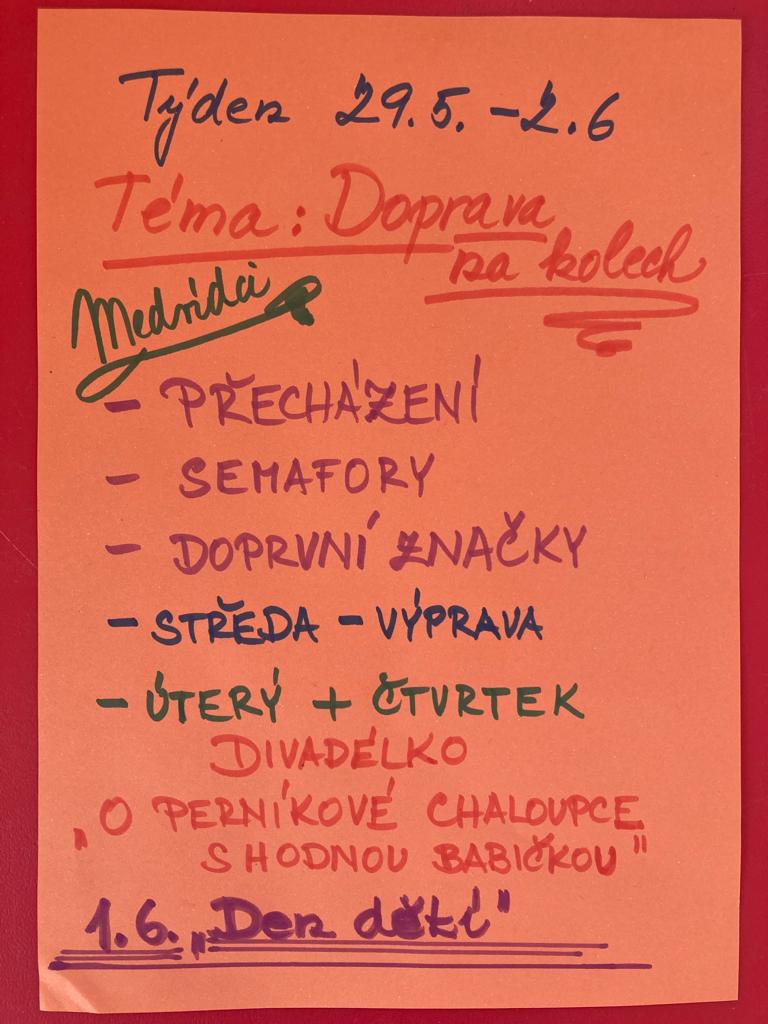 Týden 29.5. - 2.6
Téma: Doprava
na kolech
Medvídci
- PŘECHÁZENÍ
- SEMAFORY
- DOPRVNÍ ZNAČKY
- STŘEDA - VÝPRAVA
- ÚTERÝ + ČTVRTEK
DIVADÉLKO
„O PERNÍKOVÉ CHALOUPCE
S HODNOU BABIČKOU"
1.6. „Den dětí"